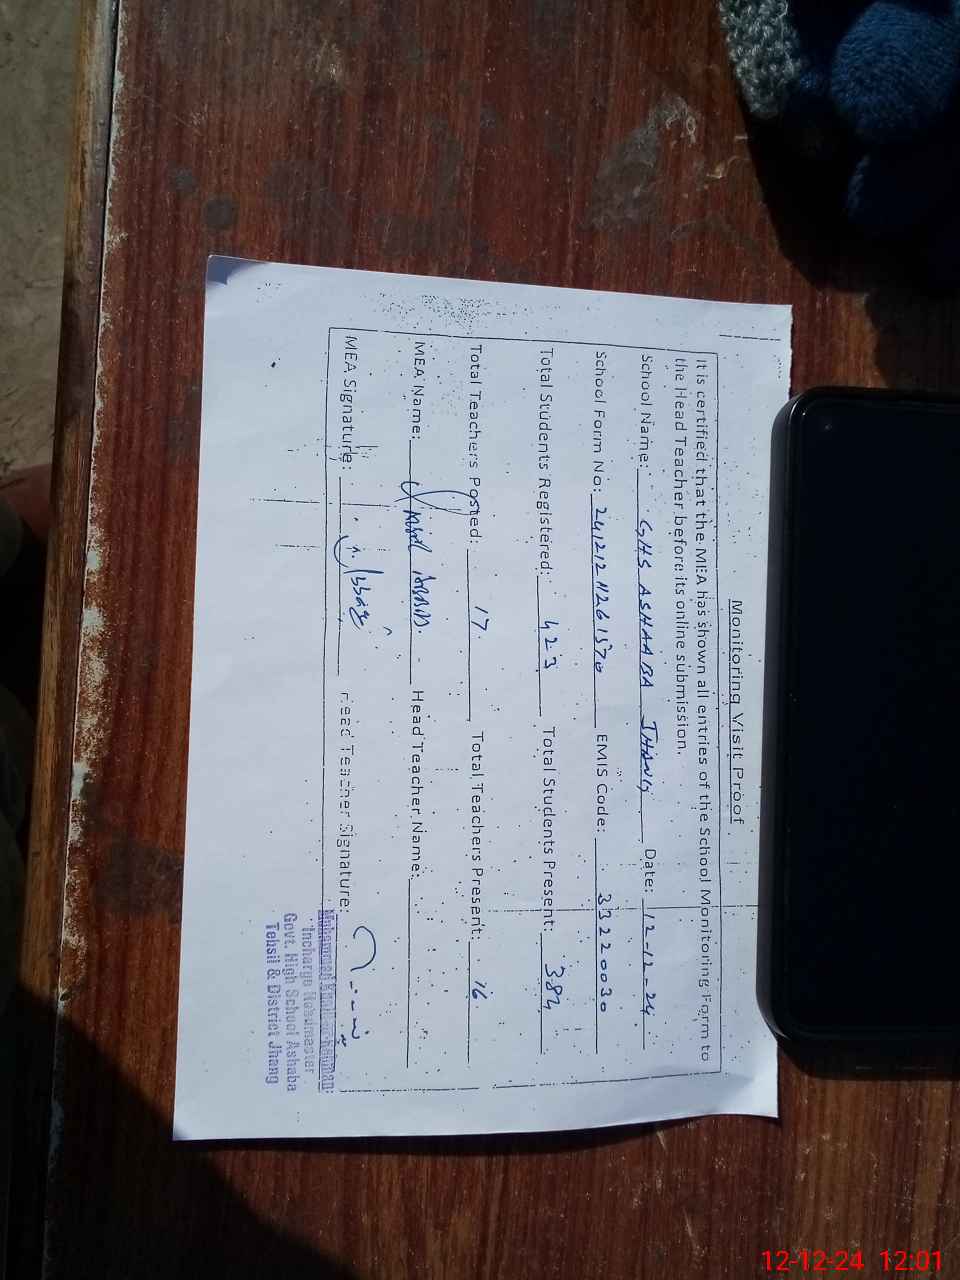 Monitoring Visit Proof
It is certified that the MEA has shown all entries of the School Monitoring Form to
the Head Teacher before its online submission.
School Name: GHS ASHAABA JHANG Date: 12-12-24
School Form No: 241212 11261570 EMIS Code: 33220030
Total Students Registered: 423 Total Students Present: 384
Total Teachers Posted: 17 Total Teachers Present: 16
MEA Name: Head Teacher Name:
MEA Signature: Head Teacher Signature:
Incharge Headmaster
Govt. High School Ashaba
Tehsil & District Jhang
12-12-24 12:01